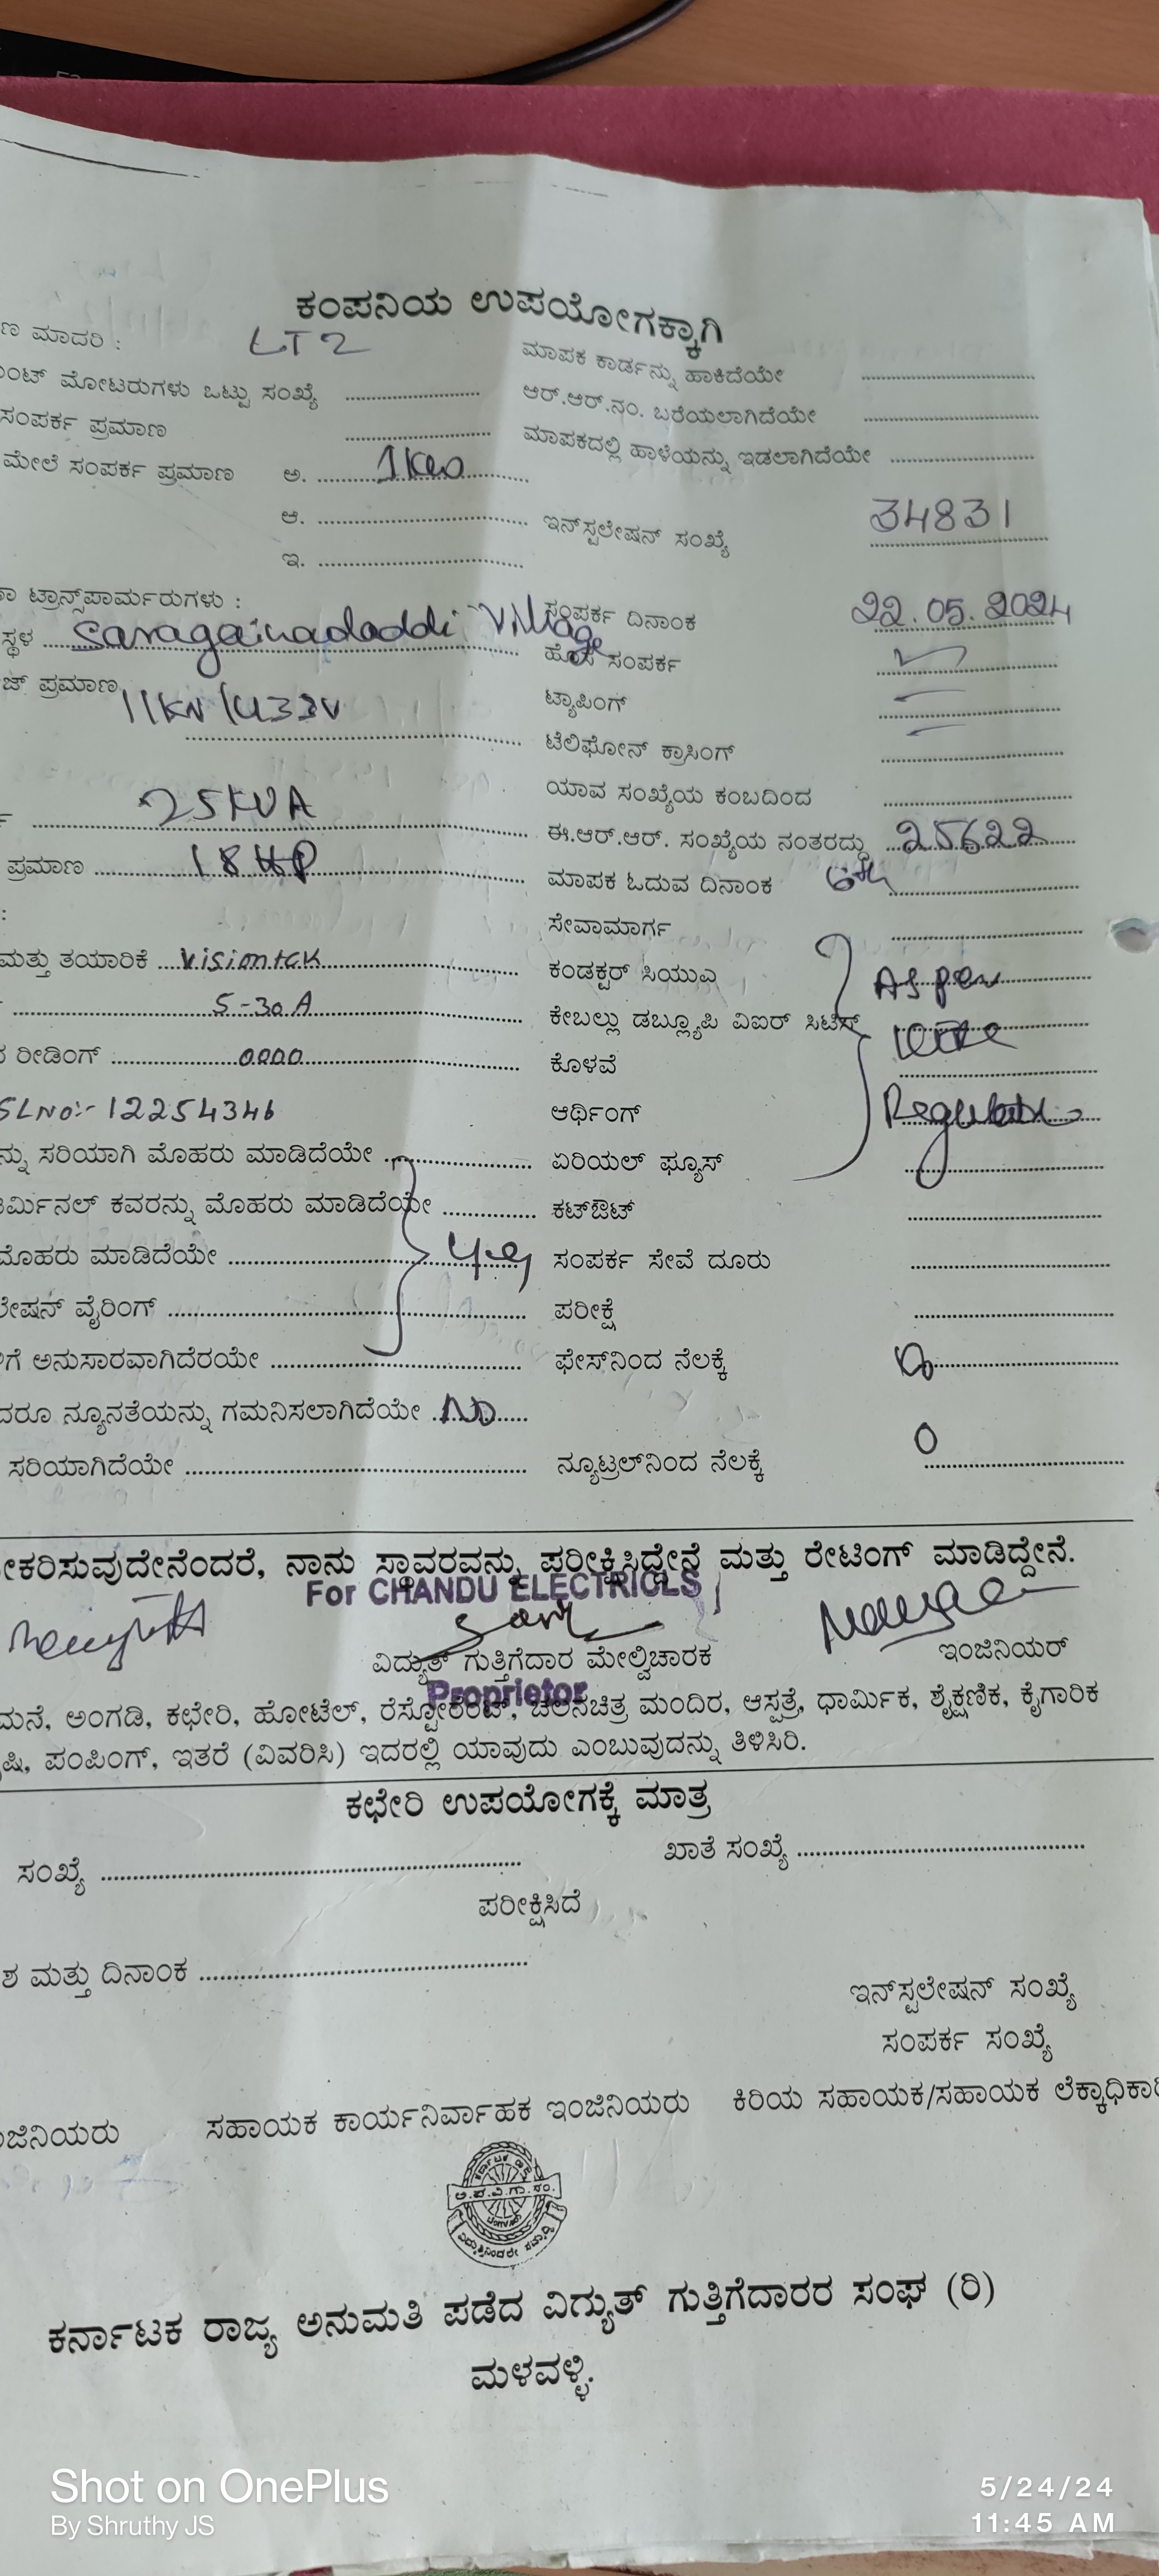 ಕಂಪನಿಯ ಉಪಯೋಗಕ್ಕಾಗಿ
ಣ ಮಾದರಿ : LT 2
ಮಾಪಕ ಕಾರ್ಡನ್ನು ಹಾಕಿದೆಯೇ
ಂಟ್ ಮೋಟರುಗಳು ಒಟ್ಟು ಸಂಖ್ಯೆ
ಆರ್.ಆರ್.ನಂ. ಬರೆಯಲಾಗಿದೆಯೇ
ಸಂಪರ್ಕ ಪ್ರಮಾಣ
ಮಾಪಕದಲ್ಲಿ ಹಾಳೆಯನ್ನು ಇಡಲಾಗಿದೆಯೇ
ಮೇಲೆ ಸಂಪರ್ಕ ಪ್ರಮಾಣ ಅ. 1 KW
ಆ.
ಇನ್‌ಸ್ಟಲೇಷನ್ ಸಂಖ್ಯೆ 34831
ಇ.
ಟ್ರಾನ್ಸ್‌ಪಾರ್ಮರುಗಳು :
ಸಂಪರ್ಕ ದಿನಾಂಕ 22.05.2024
ಸ್ಥಳ Saragainadoddi Village
ಹೊಸ ಸಂಪರ್ಕ
ಜ್ ಪ್ರಮಾಣ 11KV/433V
ಟ್ಯಾಪಿಂಗ್
ಟೆಲಿಫೋನ್ ಕ್ರಾಸಿಂಗ್
ಯಾವ ಸಂಖ್ಯೆಯ ಕಂಬದಿಂದ
25KVA
ಈ.ಆರ್.ಆರ್. ಸಂಖ್ಯೆಯ ನಂತರದ್ದು 25622
ಪ್ರಮಾಣ 18 HP
ಮಾಪಕ ಓದುವ ದಿನಾಂಕ 6th
ಸೇವಾಮಾರ್ಗ
ಮತ್ತು ತಯಾರಿಕೆ Visiontek
ಕಂಡಕ್ಟರ್ ಸಿಯುಎ As per
5-30A
ಕೇಬಲ್ಲು ಡಬ್ಲ್ಯೂಪಿ ವಿಐರ್ ಸಿಟಿಸ್
ರೀಡಿಂಗ್ 0000
ಕೊಳವೆ
SLNo:- 12254346
ಆರ್ಥಿಂಗ್
ನ್ನು ಸರಿಯಾಗಿ ಮೊಹರು ಮಾಡಿದೆಯೇ
ಏರಿಯಲ್ ಫ್ಯೂಸ್
ರ್ಮಿನಲ್ ಕವರನ್ನು ಮೊಹರು ಮಾಡಿದೆಯೇ
ಕಟ್‌ಔಟ್
ಮೊಹರು ಮಾಡಿದೆಯೇ yes
ಸಂಪರ್ಕ ಸೇವೆ ದೂರು
ಲೇಷನ್ ವೈರಿಂಗ್
ಪರೀಕ್ಷೆ
ಗೆ ಅನುಸಾರವಾಗಿದೆರಯೇ
ಫೇಸ್‌ನಿಂದ ನೆಲಕ್ಕೆ
ದರೂ ನ್ಯೂನತೆಯನ್ನು ಗಮನಿಸಲಾಗಿದೆಯೇ No
ಸರಿಯಾಗಿದೆಯೇ
ನ್ಯೂಟ್ರಲ್‌ನಿಂದ ನೆಲಕ್ಕೆ 0
ೀಕರಿಸುವುದೇನೆಂದರೆ, ನಾನು ಸ್ಥಾವರವನ್ನು ಪರೀಕ್ಷಿಸಿದ್ದೇನೆ ಮತ್ತು ರೇಟಿಂಗ್ ಮಾಡಿದ್ದೇನೆ.
For CHANDU ELECTRICLS
ವಿದ್ಯುತ್ ಗುತ್ತಿಗೆದಾರ ಮೇಲ್ವಿಚಾರಕ
ಇಂಜಿನಿಯರ್
Proprietor
ಮನೆ, ಅಂಗಡಿ, ಕಛೇರಿ, ಹೋಟೆಲ್, ರೆಸ್ಟೋರೆಂಟ್, ಚಲನಚಿತ್ರ ಮಂದಿರ, ಆಸ್ಪತ್ರೆ, ಧಾರ್ಮಿಕ, ಶೈಕ್ಷಣಿಕ, ಕೈಗಾರಿಕ
ಷಿ, ಪಂಪಿಂಗ್, ಇತರೆ (ವಿವರಿಸಿ) ಇದರಲ್ಲಿ ಯಾವುದು ಎಂಬುವುದನ್ನು ತಿಳಿಸಿರಿ.
ಕಛೇರಿ ಉಪಯೋಗಕ್ಕೆ ಮಾತ್ರ
ಸಂಖ್ಯೆ
ಖಾತೆ ಸಂಖ್ಯೆ
ಪರೀಕ್ಷಿಸಿದೆ
ಶ ಮತ್ತು ದಿನಾಂಕ
ಇನ್‌ಸ್ಟಲೇಷನ್ ಸಂಖ್ಯೆ
ಸಂಪರ್ಕ ಸಂಖ್ಯೆ
ಂಜಿನಿಯರು
ಸಹಾಯಕ ಕಾರ್ಯನಿರ್ವಾಹಕ ಇಂಜಿನಿಯರು
ಕಿರಿಯ ಸಹಾಯಕ/ಸಹಾಯಕ ಲೆಕ್ಕಾಧಿಕಾರಿ
ಕರ್ನಾಟಕ ರಾಜ್ಯ ಅನುಮತಿ ಪಡೆದ ವಿದ್ಯುತ್ ಗುತ್ತಿಗೆದಾರರ ಸಂಘ (ರಿ)
ಮಳವಳ್ಳಿ.
Shot on OnePlus
By Shruthy JS
5/24/24
11:45 AM